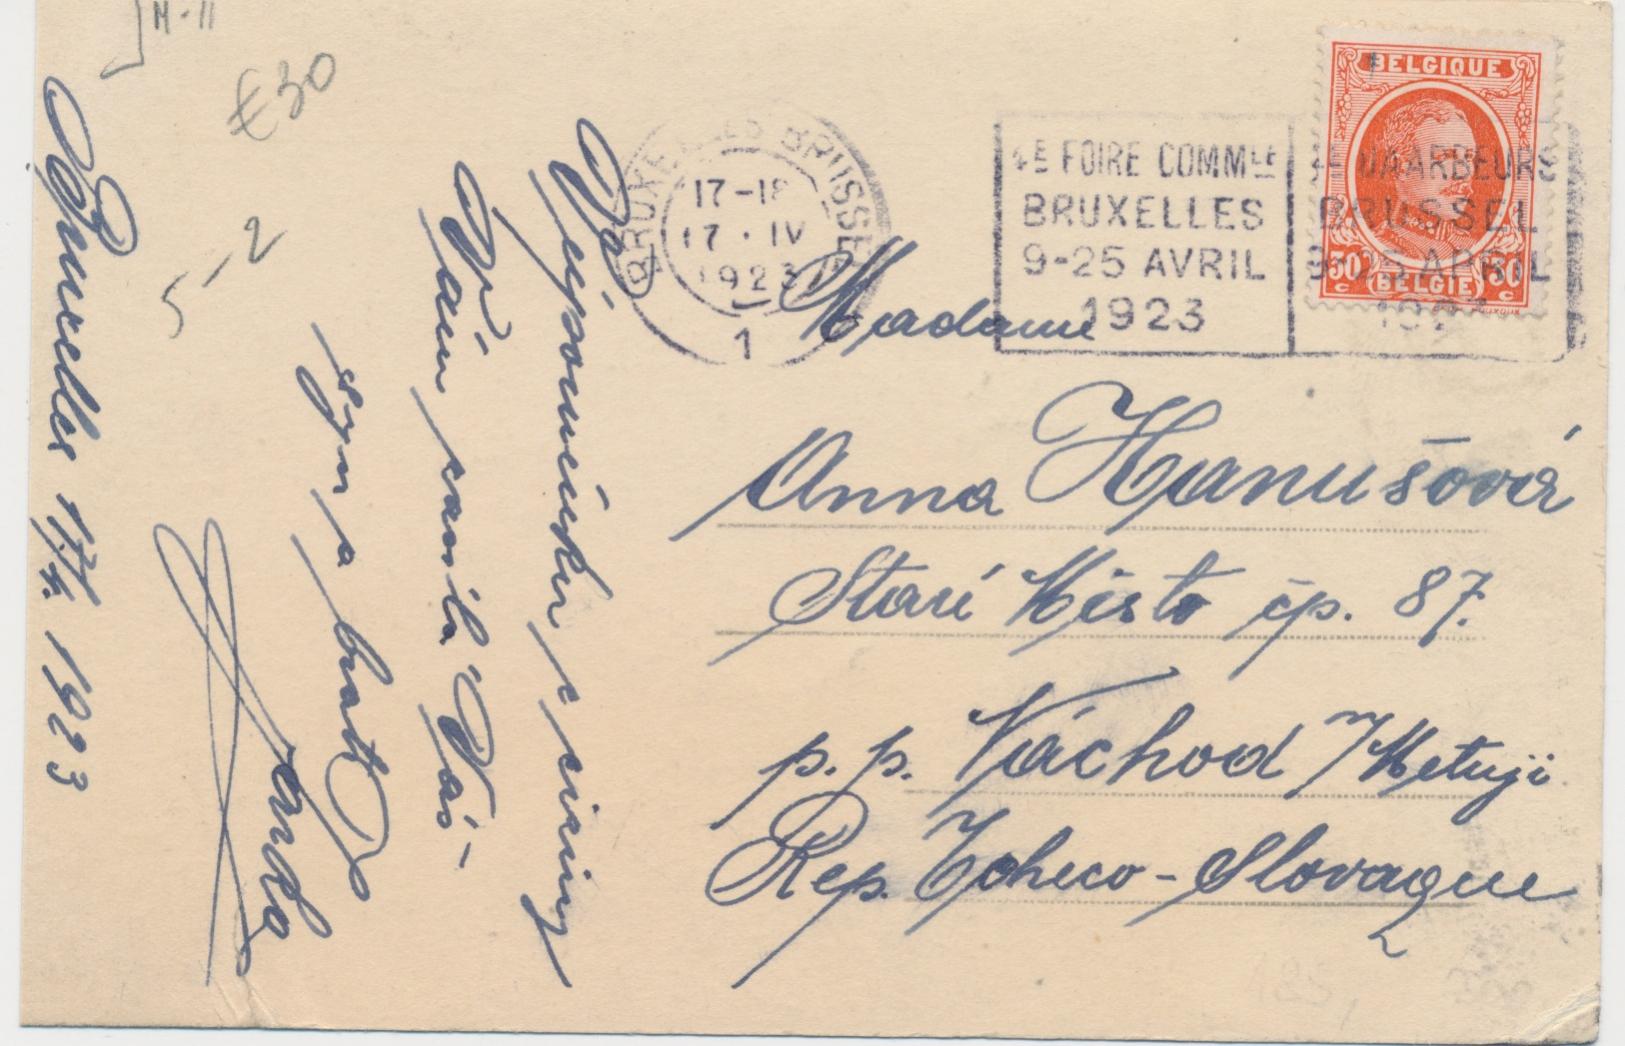 N-II
€30
5-2
Bruxelles 17/4. 1923
Vzpomínku z ciziny
Vám zasílá Váš
syn a bratr
Jarka
BRUXELLES BRUSSEL
17-18
17·IV
1923
1
4E FOIRE COMMLE
BRUXELLES
9-25 AVRIL
1923
4E JAARBEURS
BRUSSEL
9-25 APRIL
1923
BELGIQUE
30 c BELGIË 30 c
Madame
Anna Hanušová
Staré Město čp. 87.
p. p. Náchod /Metují
Rép. Tcheco-Slovaque